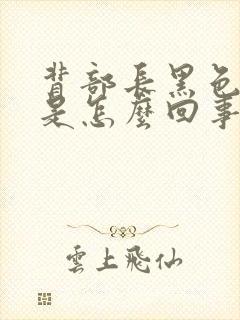 背部長黑色
是怎麼回事
雲上飛仙